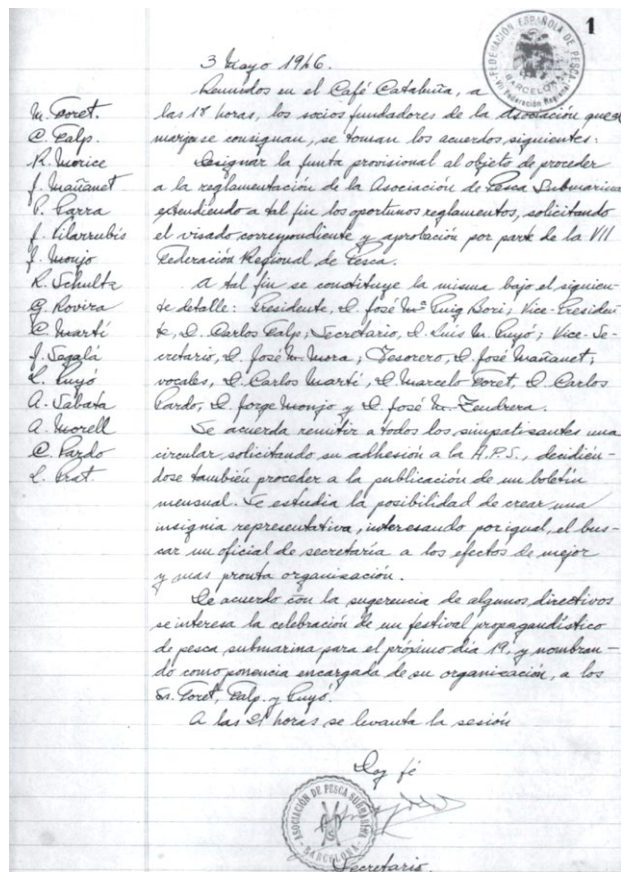 1
FEDERACIÓN ESPAÑOLA DE PESCA
VII Federación Regional
BARCELONA
3 Mayo 1946.
Reunidos en el Café Cataluña, a
las 18 horas, los socios fundadores de la Asociación que al
marjen se consignan, se toman los acuerdos siguientes:
Designar la Junta provisional al objeto de proceder
a la reglamentación de la Asociación de Pesca Submarina
extendiendo a tal fin los oportunos reglamentos, solicitando
el visado correspondiente y aprobación por parte de la VII
Federación Regional de Pesca.
A tal fin se constituye la misma bajo el siguien-
te detalle: Presidente, D. José Mª Puig Bori; Vice-Presiden
te, D. Carlos Calp; Secretario, D. Luis M. Puyó; Vice-Se-
cretario, D. José M. Mora; Tesorero, D. José Mañanet;
vocales, D. Carlos Martí, D. Marcelo Foret, D. Carlos
Pardo, D. Jorge Monjo y D. José M. Tendrera.
Se acuerda remitir a todos los simpatisantes una
circular, solicitando su adhesión a la A.P.S., decidien-
dose también proceder a la publicación de un boletín
mensual. Se estudia la posibilidad de crear una
insignia representativa, interesando por igual, el bus-
car un oficial de secretaría a los efectos de mejor
y mas pronta organisación.
De acuerdo con la sugerencia de algunos directivos
se interesa la celebración de un festival propagandístico
de pesca submarina para el próximo día 19, y nombran-
do como ponencia encargada de su organización, a los
Sr. Foret, Calp. y Puyó.
A las 21 horas se levanta la sesión
Doy fé
ASOCIACIÓN DE PESCA SUBMARINA
BARCELONA
Secretario.
M. Foret.
C. Calp.
R. Morice
J. Mañanet
P. Parra
J. Vilarrubis
J. Monjo
R. Schultz
G. Rovira
C. Martí
J. Sagalá
L. Puyó
A. Sabata
A. Morell
C. Pardo
L. Prat